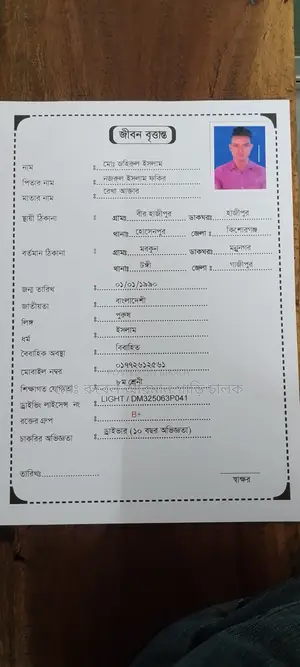 জীবন বৃত্তান্ত
নাম : মোঃ জহিরুল ইসলাম
পিতার নাম : নজরুল ইসলাম ফকির
মাতার নাম : রেখা আক্তার
স্থায়ী ঠিকানা : গ্রামঃ বীর হাজীপুর ডাকঘরঃ হাজীপুর
থানাঃ হোসেনপুর জেলা : কিশোরগঞ্জ
বর্তমান ঠিকানা : গ্রামঃ মরকুন ডাকঘরঃ মন্নুনগর
থানাঃ টঙ্গী জেলা : গাজীপুর
জন্ম তারিখ : ০১/০১/১৯৯০
জাতীয়তা : বাংলাদেশী
লিঙ্গ : পুরুষ
ধর্ম : ইসলাম
বৈবাহিক অবস্থা : বিবাহিত
মোবাইল নম্বর : ০১৭৭২৬১২৫৬১
শিক্ষাগত যোগ্যতা : ৮ম শ্রেনী
ড্রাইভিং লাইসেন্স নং : LIGHT / DM325063P041
রক্তের গ্রুপ : B+
চাকরির অভিজ্ঞতা : ড্রাইভার (১০ বছর অভিজ্ঞতা)
তারিখঃ
স্বাক্ষর